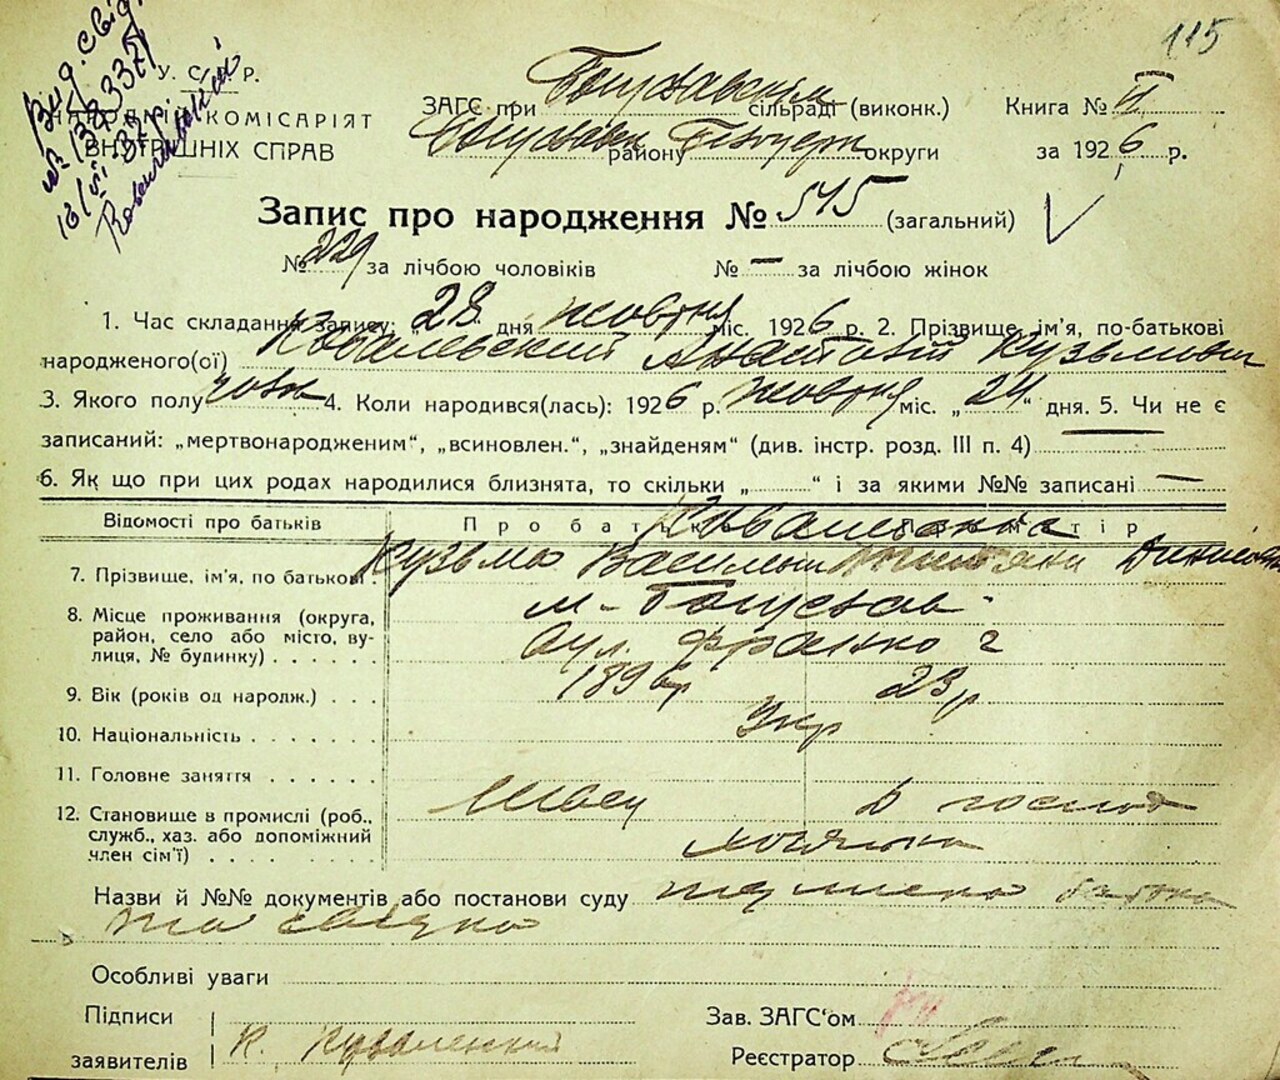 115
Вид. свід.
№ 133371
16/VI 37 р.
У. С. Р. Р.
НАРОДНІЙ КОМІСАРІЯТ
ВНУТРІШНІХ СПРАВ
ЗАГС при Богуславськім сільраді (виконк.)
Книга № II
району округи
за 1926 р.
Запис про народження № 545 (загальний)
№ 229 за лічбою чоловіків № — за лічбою жінок
1. Час складання запису: 28 дня жовтня міс. 1926 р. 2. Прізвище, ім'я, по-батькові
народженого(ої) Ковалевський Анатолій Кузьмович
3. Якого полу чолов 4. Коли народився(лась): 1926 р. жовтня міс. „24“ дня. 5. Чи не є
записаний: „мертвонародженим“, „всиновлен.“, „знайденям“ (див. інстр. розд. III п. 4)
6. Як що при цих родах народилися близнята, то скільки „ “ і за якими №№ записані —
Відомості про батьків Про батька Про матір
7. Прізвище, ім'я, по батькові. Кузьма Васильович
8. Місце проживання (округа, м. Богуслав
район, село або місто, ву- вул. Франко 2
лиця, № будинку)
9. Вік (років од народж.) 1896 р 23 р
10. Національність Укр
11. Головне заняття
12. Становище в промислі (роб., Швець
служб., хаз. або допоміжний
член сім'ї)
Назви й №№ документів або постанови суду батька
та свідка
Особливі уваги
Підписи
заявителів К. Ковалевский
Зав. ЗАГС'ом
Реєстратор